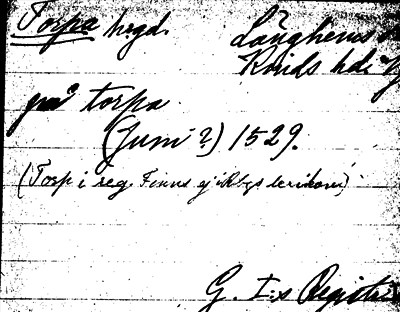 Torpa hrgd. Långhems
Kinds hd.
på torpa
(Juni ?) 1529.
(Torp i reg. Finns ej i Rbgs lexikon)
G. I:s Registr